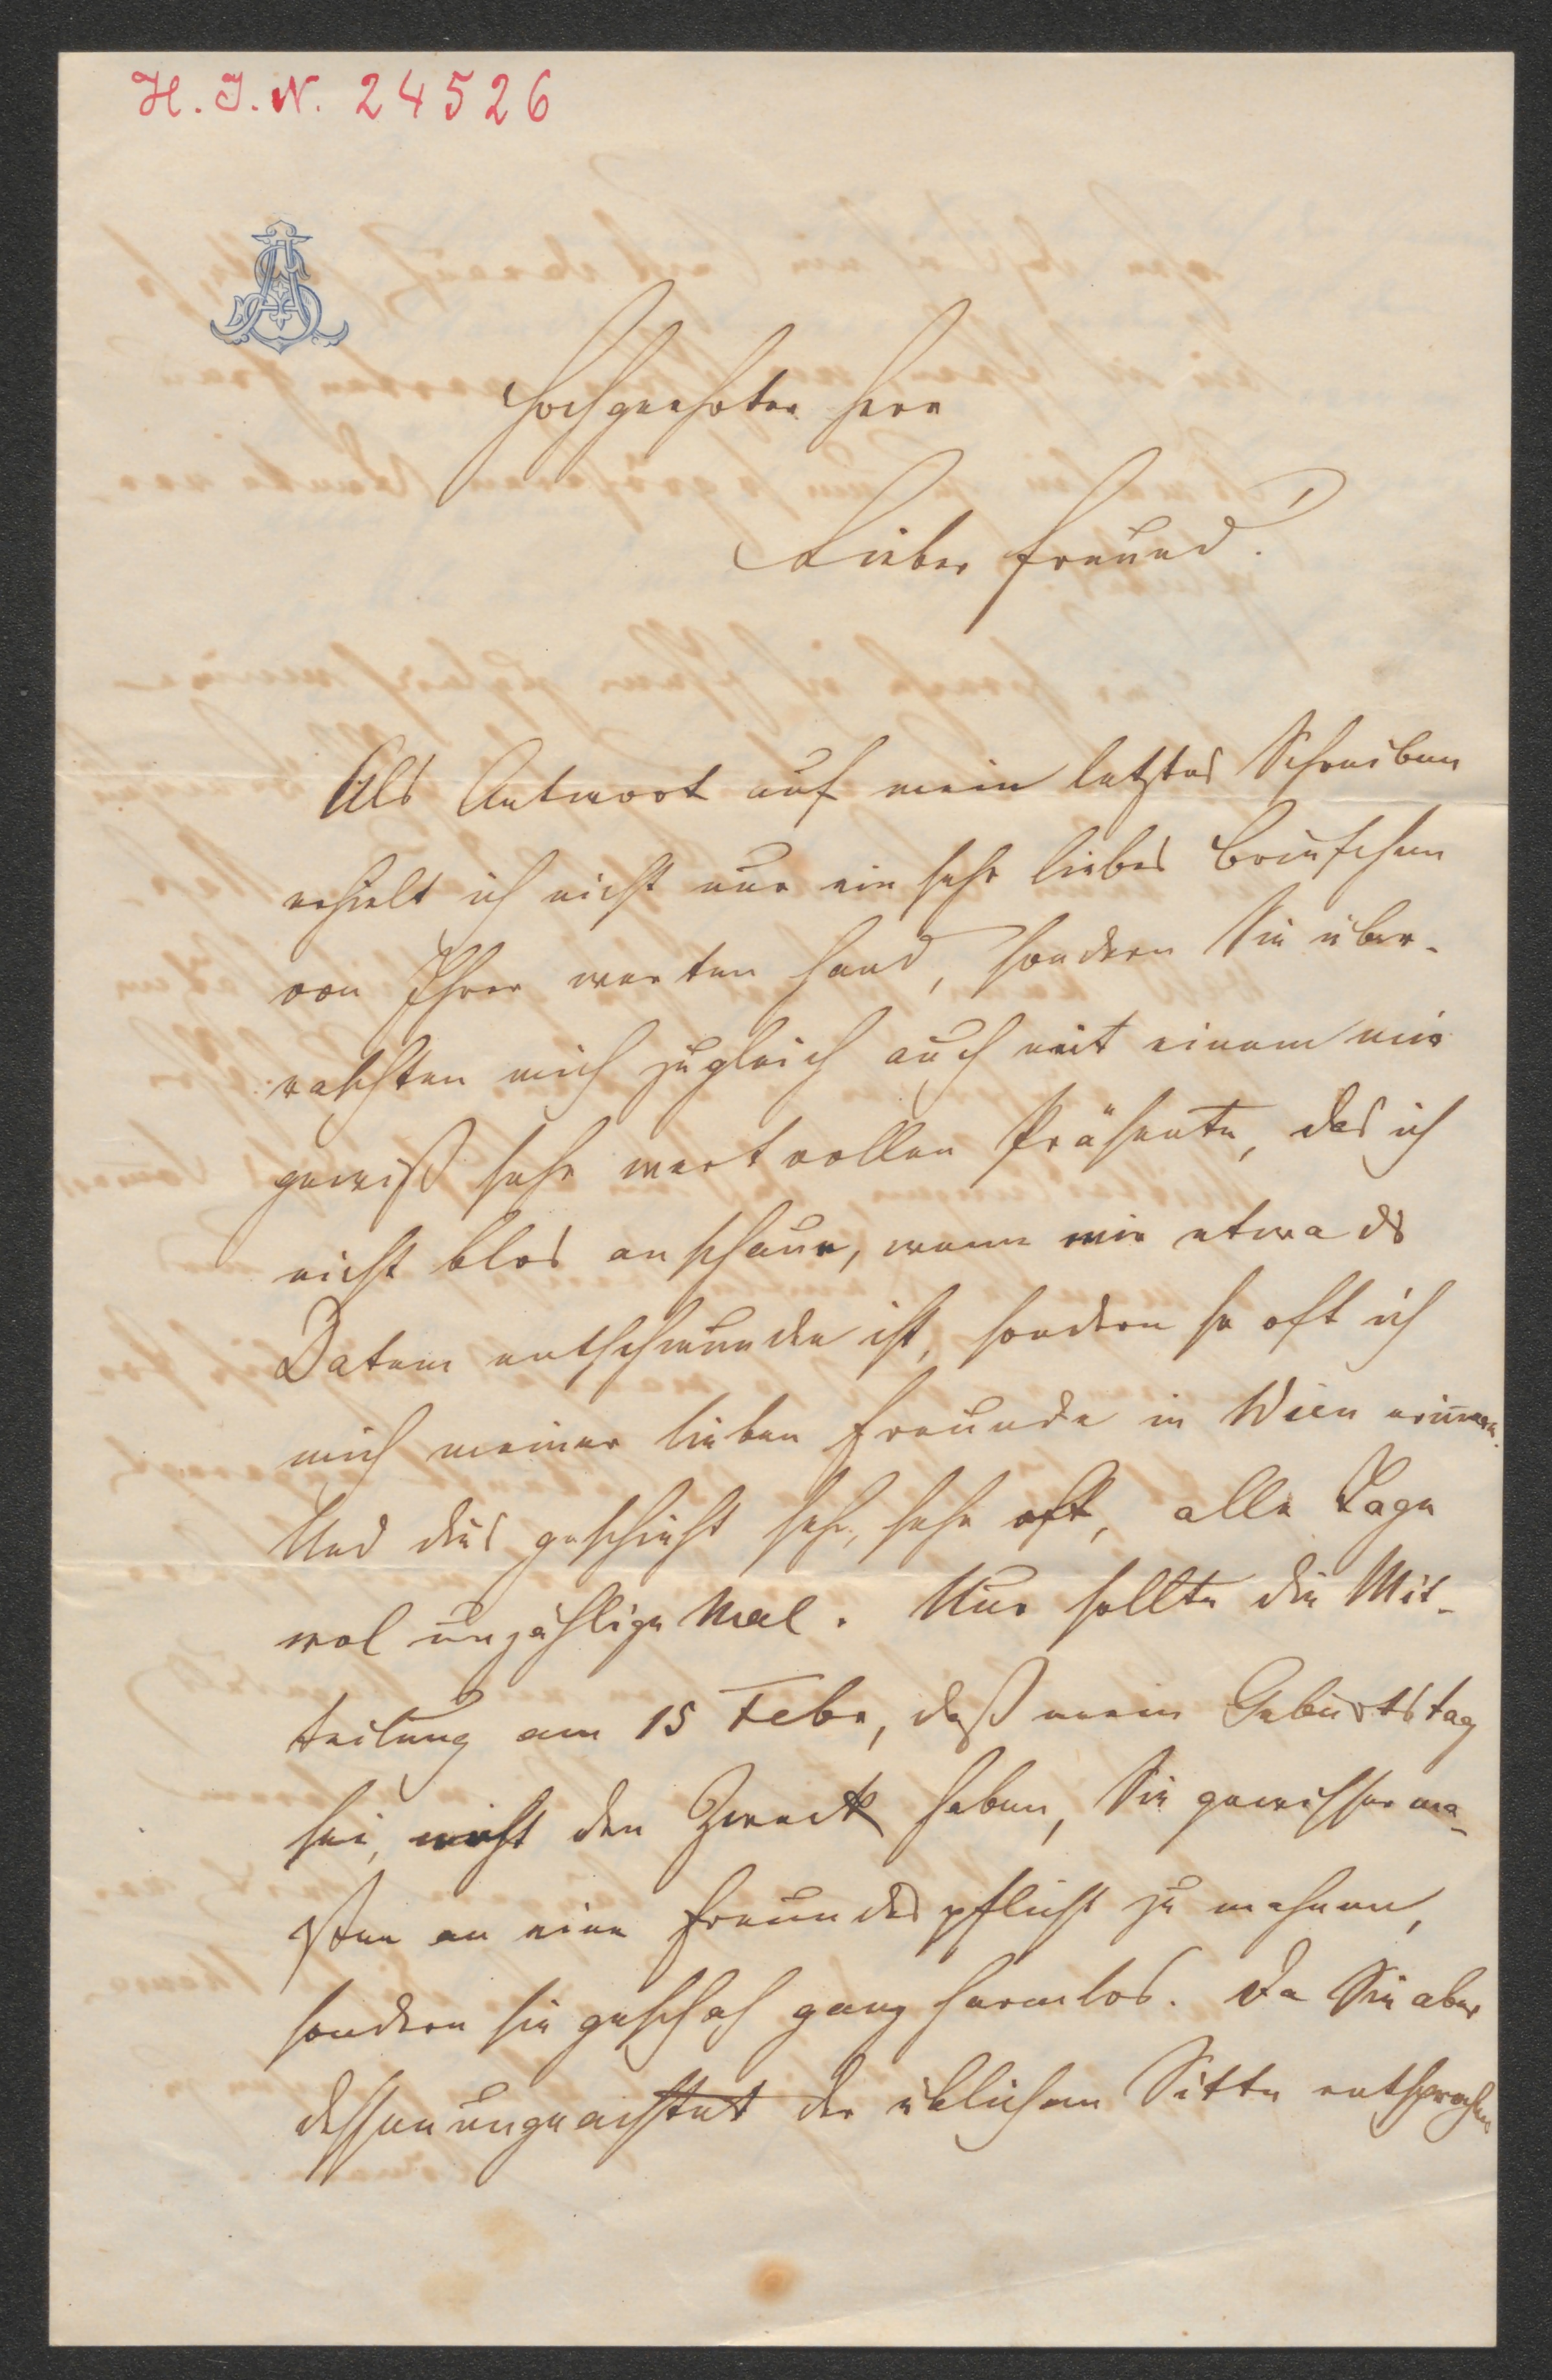 H. I. N. 24526
AS
Hochgeehrter Herr
Lieber Freund!
Als Antwort auf mein letztes Schreiben
erhielt ich nicht nur ein sehr liebes Briefchen
von Ihrer werten Hand, sondern Sie über-
raschten mich zugleich auch mit einem mir
gewiß sehr wertvollen Präsente, das ich
nicht blos anschaue, wenn mir etwa ds
Datum entschwunden ist, sondern so oft ich
mich meiner lieben Freunde in Wien erinnere.
Und dies geschieht sehr, sehr oft, alle Tage
wol unzählige Mal. Nur sollte die Mit-
teilung am 15 Febr, daß mein Geburtstag
sei, nicht den Zweck haben, Sie gewisserma-
ßen an eine Freundespflicht zu mahnen,
sondern sie geschah ganz harmlos. Da Sie aber
dessenungeachtet der üblichen Sitte entsprachen